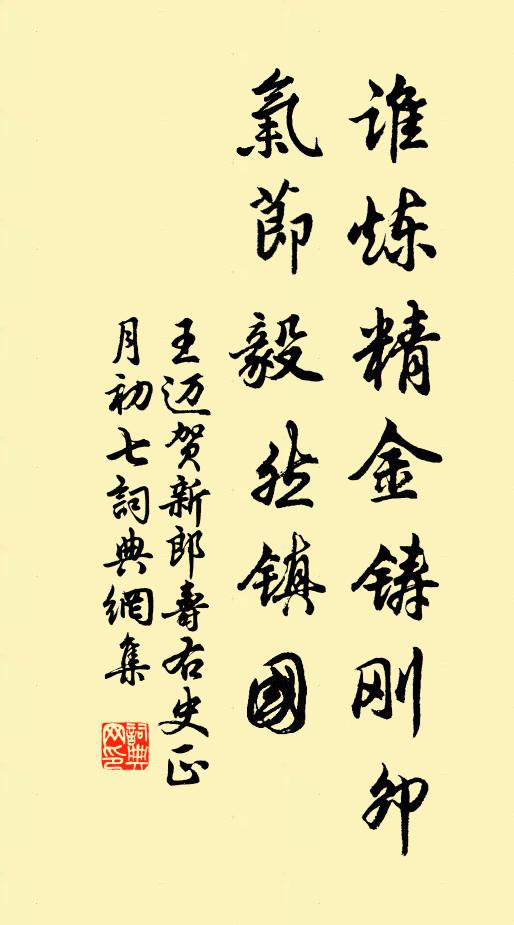 谁炼精金铸刚卯
氣節毅然镇國
王迈贺新郎壽右史正
月初七詞典網集
詞典网印